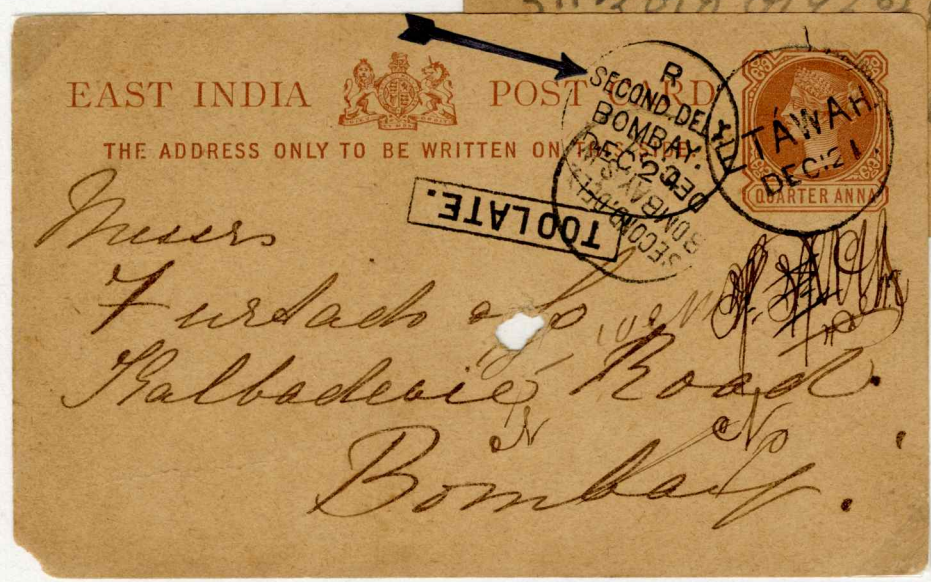 EAST INDIA POST CARD
THE ADDRESS ONLY TO BE WRITTEN ON THIS SIDE
QUARTER ANNA
R
SECOND.DELY.
BOMBAY.
DEC 2
SECOND.DEL
BOMBAY
DEC
TAWAH.
DEC:21
TOO LATE.
Messrs
Furtado & Co
Kalbadevie Road.
Bombay.